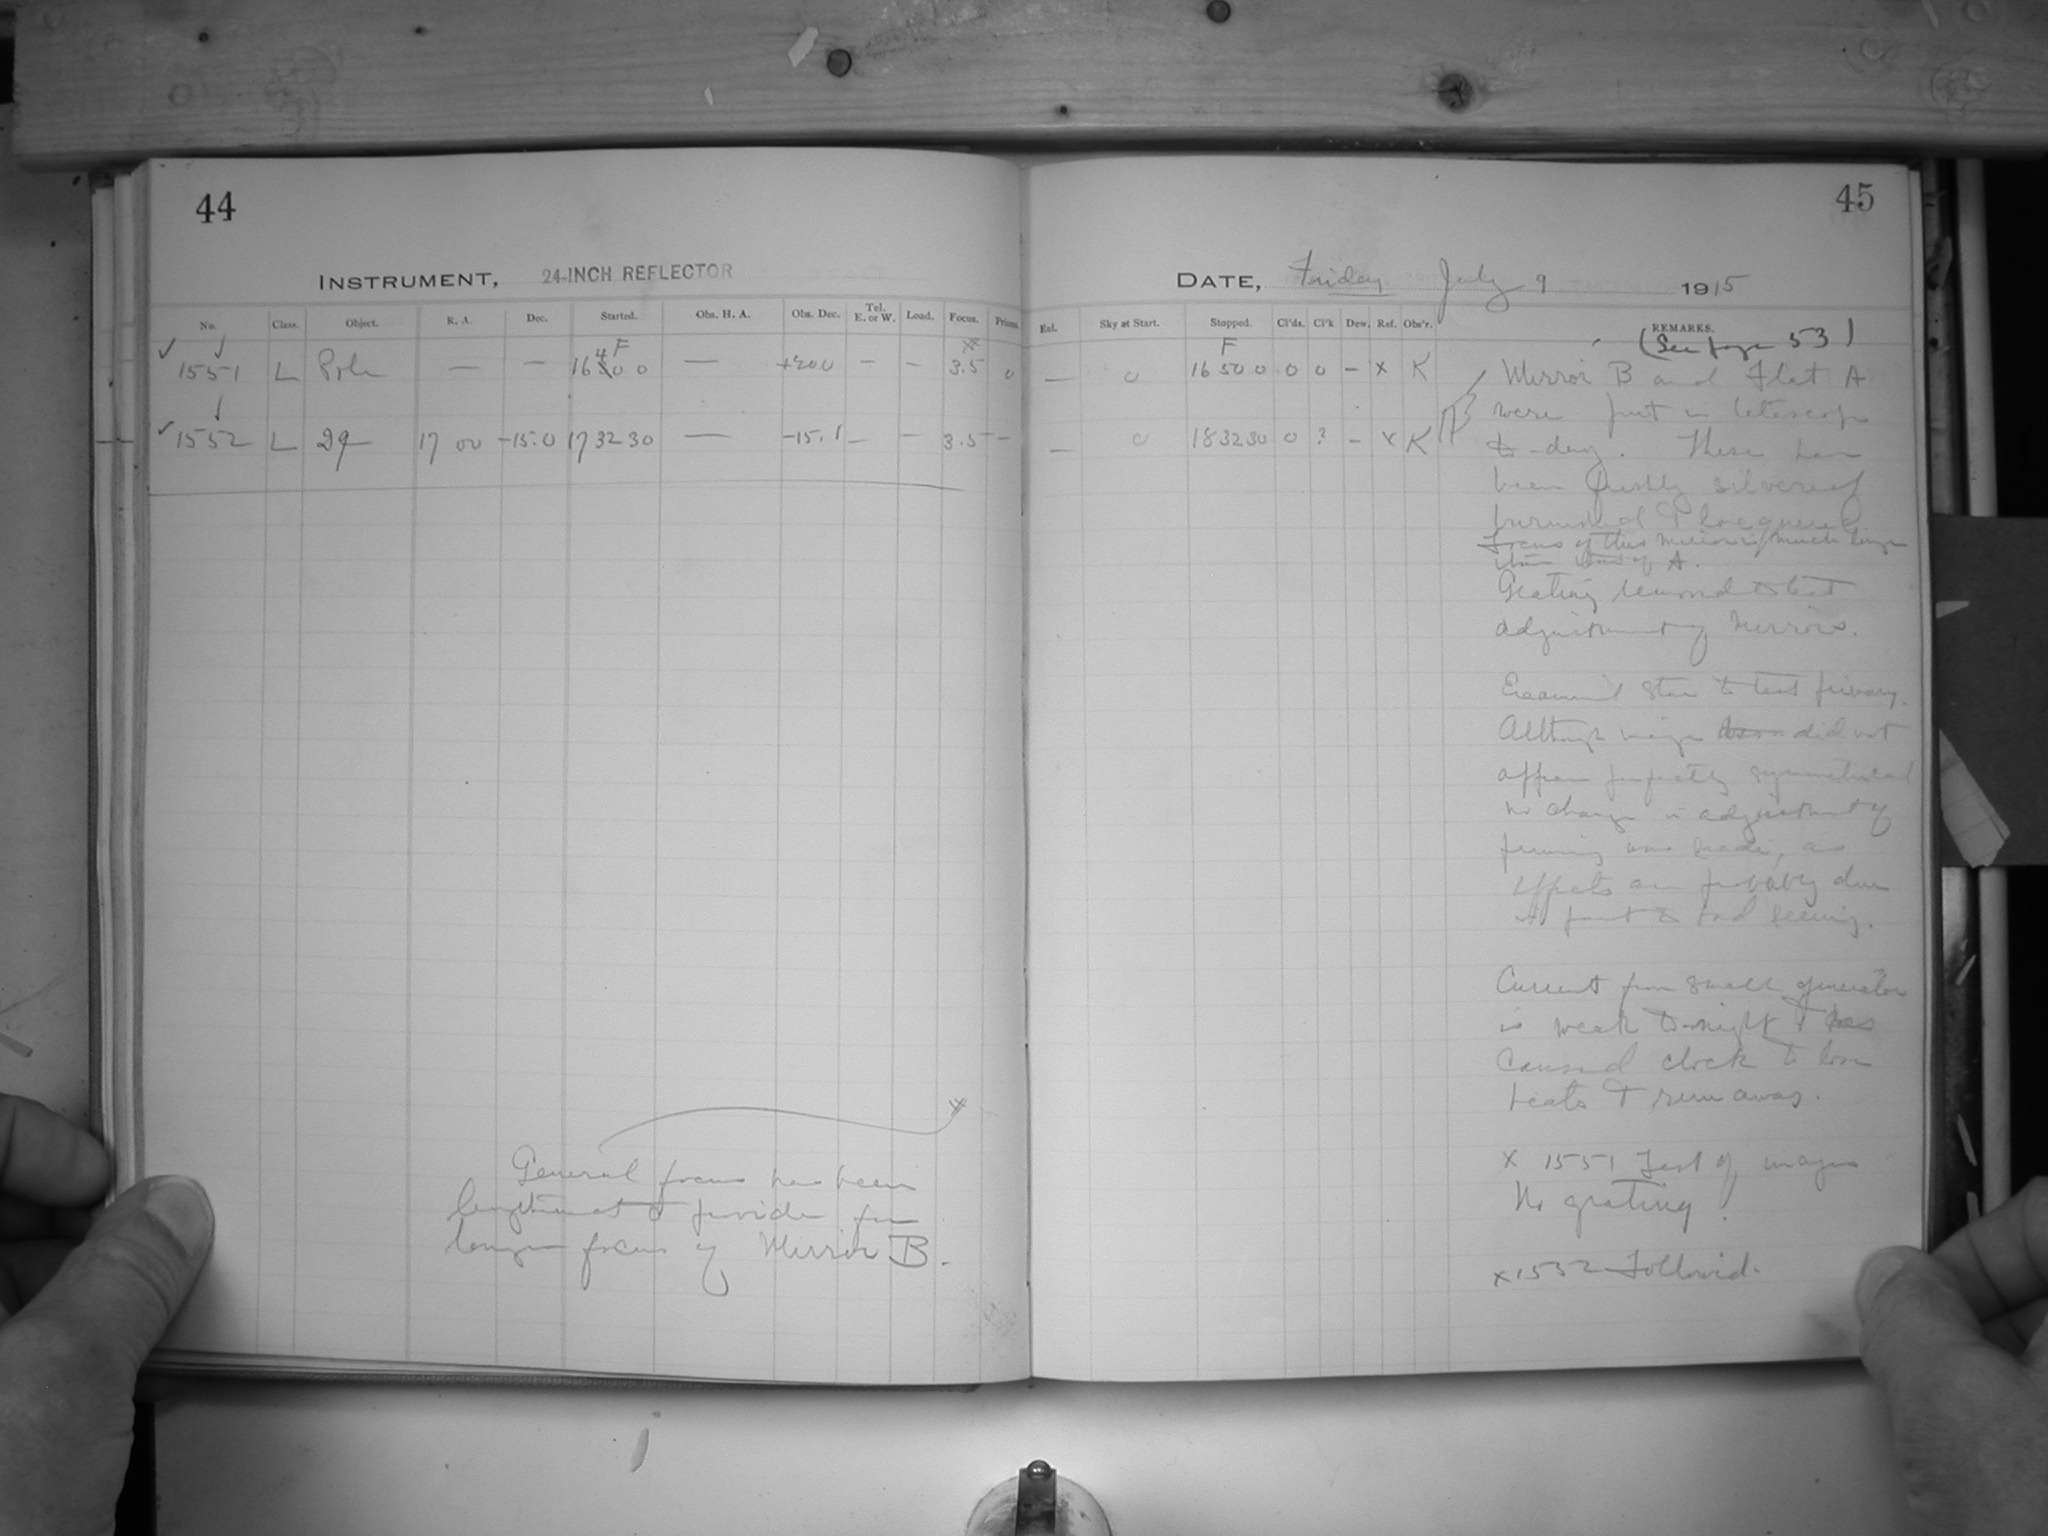 44
INSTRUMENT, 24-INCH REFLECTOR
No. Class. Object. R. A. Dec. Started. Obs. H. A. Obs. Dec. Tel. E. or W. Load. Focus. Prism.
1551 L Pole — — 16 4 F 0 0 — +200 — — 3.5 0
1552 L 29 17 00 -15.0 17 32 30 — -15.1 — — 3.5 —
General focus has been
lengthened to provide for
longer focus of Mirror B.
45
DATE, Friday July 9 1915
Ent. Sky at Start. Stopped. Cl'ds. Cl'k Dew. Ref. Obs'r. REMARKS.
(See page 53)
— 0 F 16 50 0 0 0 — x K
— 0 18 32 30 0 ? — x K
Mirror B and Flat A
were put in telescope
to-day. These have
been freshly silvered
burnished & lacquered.
Focus of this mirror is much longer
than that of A.
Grating removed to test
adjustment of Mirrors.
Examined star to test primary.
Although image did not
appear perfectly symmetrical
no change in adjustment of
was made, as
effects are probably due
in part to bad seeing.
Current from small generator
is weak to-night & has
caused clock to lose
beats & run away.
x 1551 Test of images
No grating!
x 1552 Followed.